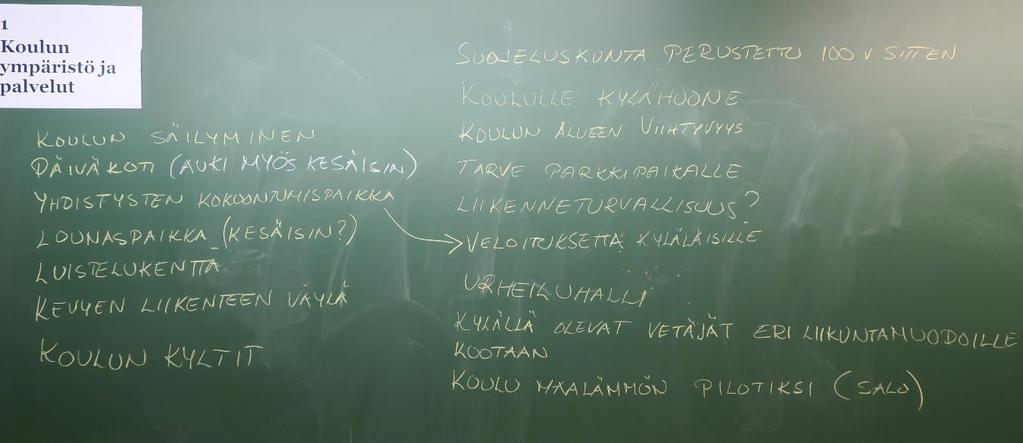 1
Koulun
ympäristö ja
palvelut
KOULUN SÄILYMINEN
PÄIVÄKOTI (AUKI MYÖS KESÄISIN)
YHDISTYSTEN KOKOONTUMISPAIKKA
LOUNASPAIKKA (KESÄISIN?)
LUISTELUKENTTÄ
KEVYEN LIIKENTEEN VÄYLÄ
KOULUN KYLTIT
SUOJELUSKUNTA PERUSTETTU 100 V SITTEN
KOULULLE KYLÄHUONE
KOULUN ALUEEN VIIHTYVYYS
TARVE PARKKIPAIKALLE
LIIKENNETURVALLISUUS?
VELOITUKSETTA KYLÄLÄISILLE
URHEILUHALLI
KYLÄLLÄ OLEVAT VETÄJÄT ERI LIIKUNTAMUODOILLE
KOOTAAN
KOULU MAALÄMMÖN PILOTIKSI (SALO)